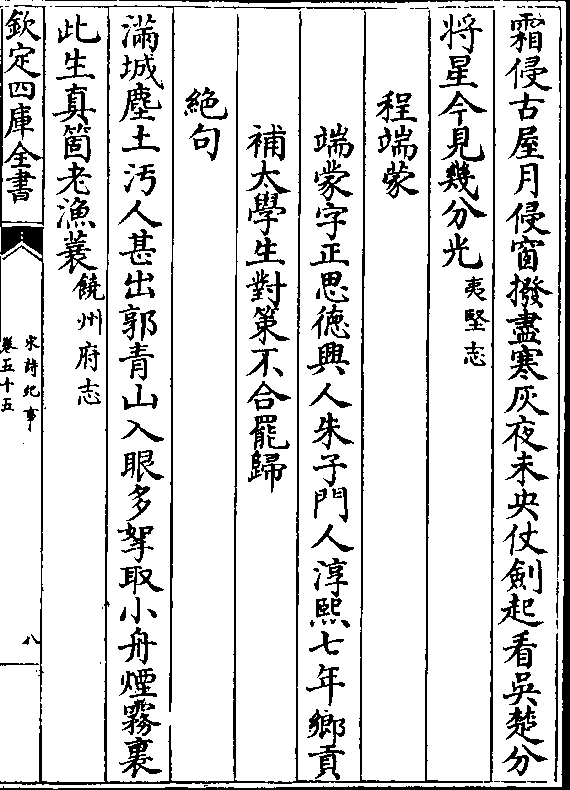 霜侵古屋月侵窗撥盡寒灰夜未央仗劍起看吳楚分
将星今見幾分光夷堅志
程端蒙
端蒙字正思德興人朱子門人淳熙七年鄉貢
補太學生對策不合罷歸
絶句
滿城塵土汚人甚出郭青山入眼多拏取小舟煙霧裏
此生真箇老漁蓑饒州府志
欽定四庫全書
宋詩紀事
卷五十五
八